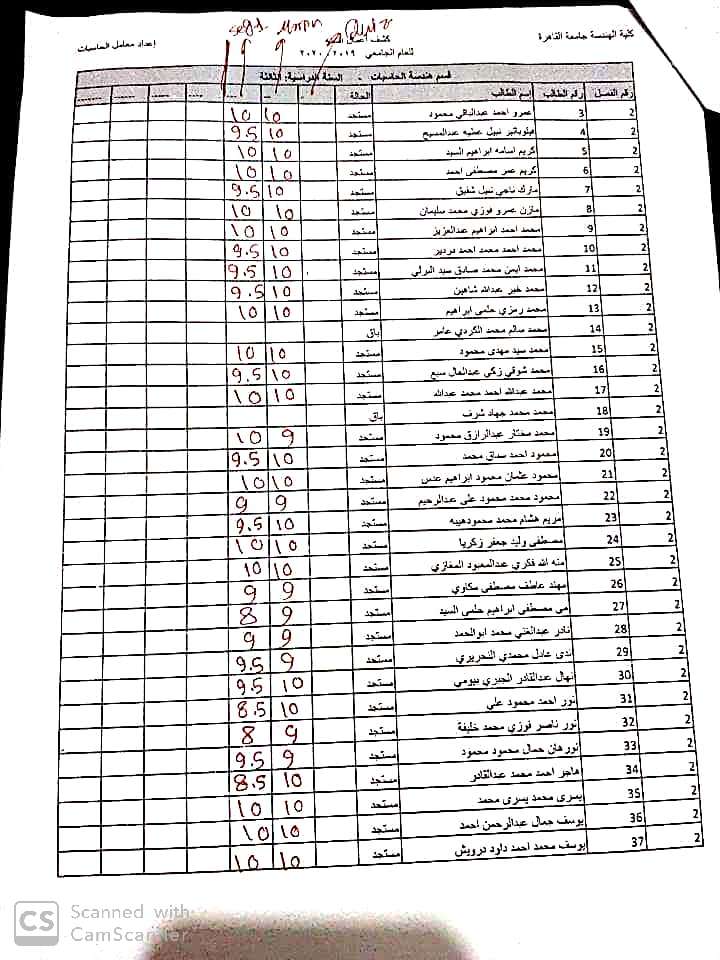 segt. Morph Quiz
كلية الهندسة جامعة القاهرة
كشف أعمال
إعداد معامل الحاسبات
للعام الجامعي ٢٠١٩ / ٢٠٢٠
قسم هندسة الحاسبات - السنة الدراسية: الثالثة
رقم الفصل رقم الطالب إسم الطالب الحالة
2 3 عمرو احمد عبدالباقي محمود مستجد 10 10
2 4 فيلوباتير نبيل عطيه عبدالمسيح مستجد 10 9.5
2 5 كريم اسامه ابراهيم السيد مستجد 10 10
2 6 كريم عمر مصطفى احمد مستجد 10 10
2 7 مارك ناجي نبيل شفيق مستجد 10 9.5
2 8 مازن عمرو فوزي محمد سليمان مستجد 10 10
2 9 محمد احمد ابراهيم عبدالعزيز مستجد 10 10
2 10 محمد احمد محمد احمد دردير مستجد 10 9.5
2 11 محمد ايمن محمد صادق سيد البرلي مستجد 10 9.5
2 12 محمد خبر عبدالله شاهين مستجد 10 9.5
2 13 محمد رمزي حلمى ابراهيم مستجد 10 10
2 14 محمد سالم محمد الكردي عامر باق
2 15 محمد سيد مهدى محمود مستجد 10 10
2 16 محمد شوقي زكي عبدالعال سبع مستجد 10 9.5
2 17 محمد عبدالله احمد محمد عبدالله مستجد 10 10
2 18 محمد محمد جهاد شرف باق
2 19 محمد مختار عبدالرازق محمود مستجد 9 10
2 20 محمود احمد صداق محمد مستجد 10 9.5
2 21 محمود عثمان محمود ابراهيم عدس مستجد 10 10
2 22 محمود محمد محمود على عبدالرحيم مستجد 9 9
2 23 مريم هشام محمد محمودهيبه مستجد 10 9.5
2 24 مصطفى وليد جعفر زكريا مستجد 10 10
2 25 منه الله فكري عبدالمعبود المغازي مستجد 10 10
2 26 مهند عاطف مصطفى مكاوي مستجد 9 9
2 27 مى مصطفى ابراهيم حلمى السيد مستجد 9 8
2 28 نادر عبدالغني محمد ابوالحمد مستجد 9 9
2 29 ندى عادل محمدي النحريري مستجد 9 9.5
2 30 نهال عبدالقادر الجبري بيومي مستجد 10 9.5
2 31 نور احمد محمود علي مستجد 10 8.5
2 32 نور ناصر فوزي محمد خليفة مستجد 9 8
2 33 نورهان جمال محمود محمود مستجد 9 9.5
2 34 هاجر احمد محمد عبدالقادر مستجد 10 8.5
2 35 يسرى محمد يسرى محمد مستجد 10 10
2 36 يوسف جمال عبدالرحمن احمد مستجد 10 10
2 37 يوسف محمد احمد داود درويش مستجد 10 10
CS Scanned with
CamScanner